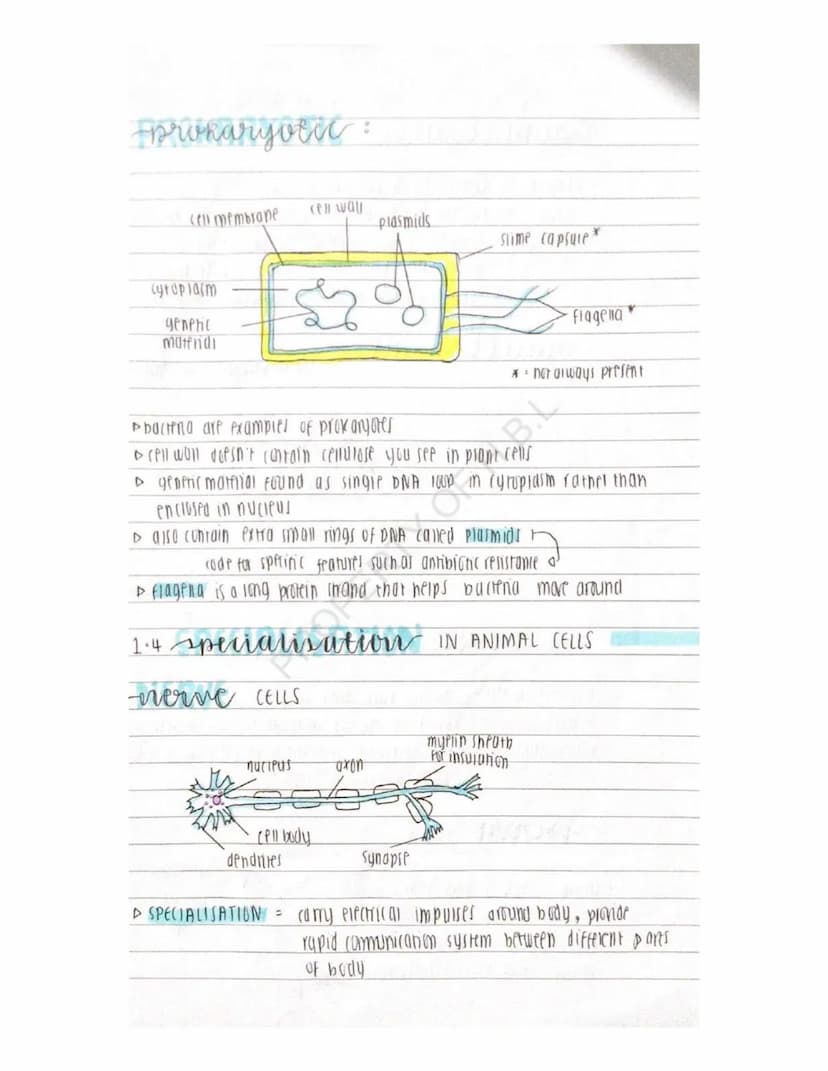 prokaryotic:
cell membrane
cell wall
plasmids
slime capsule*
cytoplasm
genetic
material
flagella*
* = not always present
▷ bacteria are examples of prokaryotes
▷ cell wall doesn't contain cellulose you see in plant cells
▷ genetic material found as single DNA loop in cytoplasm rather than
enclosed in nucleus
▷ also contain extra small rings of DNA called plasmids
code for specific features such as antibiotic resistance
▷ flagella is a long protein strand that helps bacteria move around
1.4 specialisation IN ANIMAL CELLS
nerve CELLS
myelin sheath
for insulation
nucleus
axon
cell body
dendrites
synapse
▷ SPECIALISATION = carry electrical impulses around body, provide
rapid communication system between different parts
of body
PROPERTY OF N.B.L